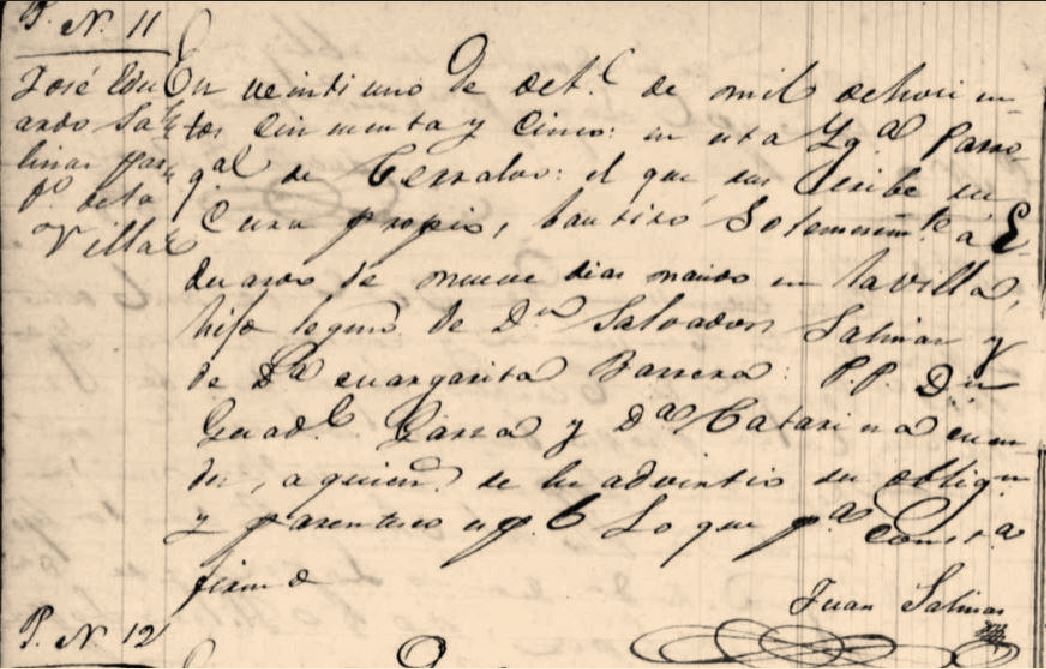 P. N. 11
José Edu
ardo Sa
linas par
bo. de la
Villa
En veinti uno de Oct.e de mil ochocien
tos cinquenta y cinco: en esta Yg.a Parro
q.al de Cerralvo: el que suscribe su
Cura propio, bautisó Solemnem.te á E
duardo de nueve dias nacido en la villa,
hijo legmo. de D.n Salvador Salinas y
de D.a Margarita Barrera: P.P. D.n
Guad.e Garza y D.a Catarina
des, a quienes se les advirtio su oblign
y parentesco esp.l Lo que p.a Const.a
firmo
Juan Salinas
P. N. 12